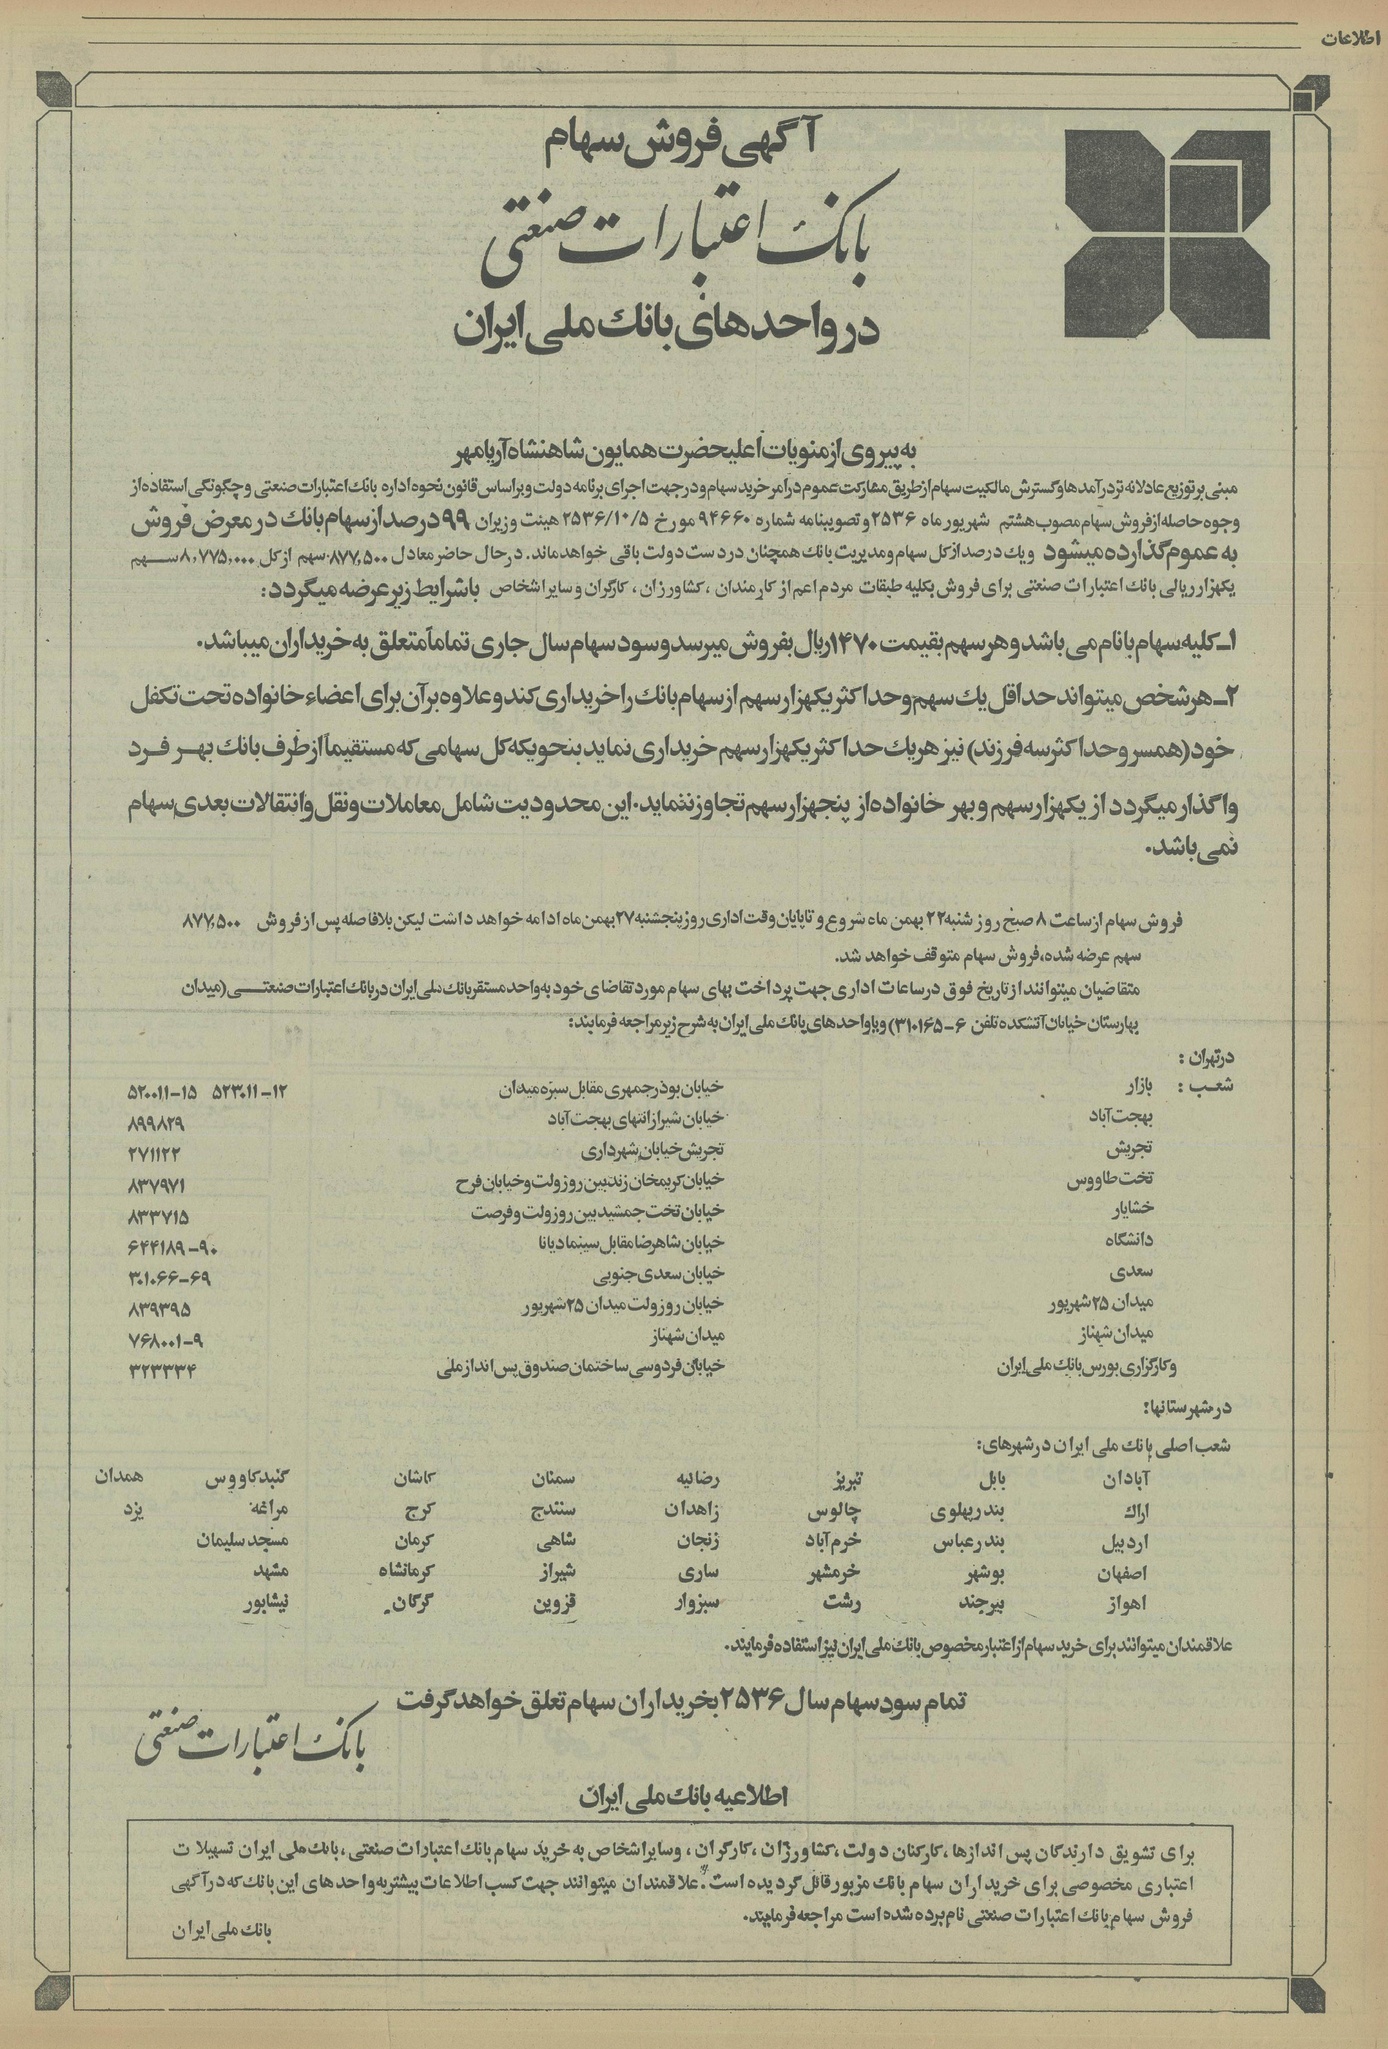 اطلاعات
آگهی فروش سهام
بانک اعتبارات صنعتی
در واحدهای بانک ملی ایران
به پیروی از منویات اعلیحضرت همایون شاهنشاه آریامهر
مبنی بر توزیع عادلانه تر درآمدها و گسترش مالکیت سهام از طریق مشارکت عموم در امر خرید سهام و در جهت اجرای برنامه دولت و براساس قانون نحوه اداره بانک اعتبارات صنعتی و چگونگی استفاده از
وجوه حاصله از فروش سهام مصوب هشتم شهریور ماه ۲۵۳۶ و تصویبنامه شماره ۹۴۶۶۰ مورخ ۲۵۳۶/۱۰/۵ هیئت وزیران ۹۹ درصد از سهام بانک در معرض فروش
به عموم گذارده میشود و یک درصد از کل سهام و مدیریت بانک همچنان در دست دولت باقی خواهد ماند. در حال حاضر معادل ۸۷۷,۵۰۰ سهم از کل ۸,۷۷۵,۰۰۰ سهم
یکهزار ریالی بانک اعتبارات صنعتی برای فروش بکلیه طبقات مردم اعم از کارمندان ، کشاورزان ، کارگران و سایر اشخاص باشرایط زیر عرضه میگردد :
۱ـ کلیه سهام با نام می باشد و هر سهم بقیمت ۱۴۷۰ ریال بفروش میرسد و سود سهام سال جاری تماماً متعلق به خریداران میباشد.
۲ـ هر شخص میتواند حداقل یک سهم و حداکثر یکهزار سهم از سهام بانک را خریداری کند و علاوه بر آن برای اعضاء خانواده تحت تکفل
خود (همسر و حداکثر سه فرزند) نیز هریک حداکثر یکهزار سهم خریداری نماید بنحویکه کل سهامی که مستقیماً از طرف بانک بهر فرد
واگذار میگردد از یکهزار سهم و بهر خانواده از پنجهزار سهم تجاوز ننماید. این محدودیت شامل معاملات و نقل و انتقالات بعدی سهام
نمی باشد.
فروش سهام از ساعت ۸ صبح روز شنبه ۲۲ بهمن ماه شروع و تا پایان وقت اداری روز پنجشنبه ۲۷ بهمن ماه ادامه خواهد داشت لیکن بلافاصله پس از فروش ۸۷۷,۵۰۰
سهم عرضه شده، فروش سهام متوقف خواهد شد.
متقاضیان میتوانند از تاریخ فوق در ساعات اداری جهت پرداخت بهای سهام مورد تقاضای خود به واحد مستقر بانک ملی ایران در بانک اعتبارات صنعتی (میدان
بهارستان خیابان آتشکده تلفن ۶-۳۱۰۱۶۵) و یا واحدهای بانک ملی ایران به شرح زیر مراجعه فرمایند:
در تهران :
شعب : بازار خیابان بوذرجمهری مقابل سبزه میدان ۵۲۳۰۱۱-۱۲ ۵۲۰۰۱۱-۱۵
بهجت آباد خیابان شیراز انتهای بهجت آباد ۸۹۹۸۲۹
تجریش تجریش خیابان شهرداری ۲۷۱۱۲۲
تخت طاووس خیابان کریمخان زند بین روزولت و خیابان فرح ۸۳۷۹۷۱
خشایار خیابان تخت جمشید بین روزولت و فرصت ۸۳۳۷۱۵
دانشگاه خیابان شاهرضا مقابل سینما دیانا ۶۴۴۱۸۹-۹۰
سعدی خیابان سعدی جنوبی ۳۰۱۰۶۶-۶۹
میدان ۲۵ شهریور خیابان روزولت میدان ۲۵ شهریور ۸۳۹۳۹۵
میدان شهناز میدان شهناز ۷۶۸۰۰۱-۹
و کارگزاری بورس بانک ملی ایران خیابان فردوسی ساختمان صندوق پس انداز ملی ۳۲۳۳۳۴
در شهرستانها:
شعب اصلی بانک ملی ایران در شهرهای:
آبادان بابل تبریز رضائیه سمنان کاشان گنبد کاووس همدان
اراک بندر پهلوی چالوس زاهدان سنندج کرج مراغه یزد
اردبیل بندر عباس خرم آباد زنجان شاهی کرمان مسجد سلیمان
اصفهان بوشهر خرمشهر ساری شیراز کرمانشاه مشهد
اهواز بیرجند رشت سبزوار قزوین گرگان نیشابور
علاقمندان میتوانند برای خرید سهام از اعتبار مخصوص بانک ملی ایران نیز استفاده فرمایند.
تمام سود سهام سال ۲۵۳۶ بخریداران سهام تعلق خواهد گرفت
بانک اعتبارات صنعتی
اطلاعیه بانک ملی ایران
برای تشویق دارندگان پس اندازها ،کارکنان دولت ،کشاورزان ،کارگران ، و سایر اشخاص به خرید سهام بانک اعتبارات صنعتی ، بانک ملی ایران تسهیلات
اعتباری مخصوصی برای خریداران سهام بانک مزبور قائل گردیده است . علاقمندان میتوانند جهت کسب اطلاعات بیشتر به واحدهای این بانک که در آگهی
فروش سهام بانک اعتبارات صنعتی نام برده شده است مراجعه فرمایند.
بانک ملی ایران